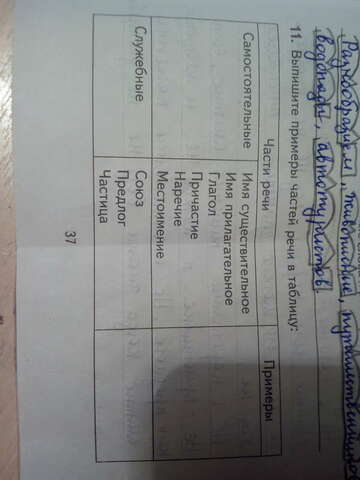 Разнообразием, животные, путешественников
водопады, автотуристов.
11. Выпишите примеры частей речи в таблицу:
Части речи Примеры
Самостоятельные Имя существительное
Имя прилагательное
Глагол
Причастие
Наречие
Местоимение
Служебные Союз
Предлог
Частица
37